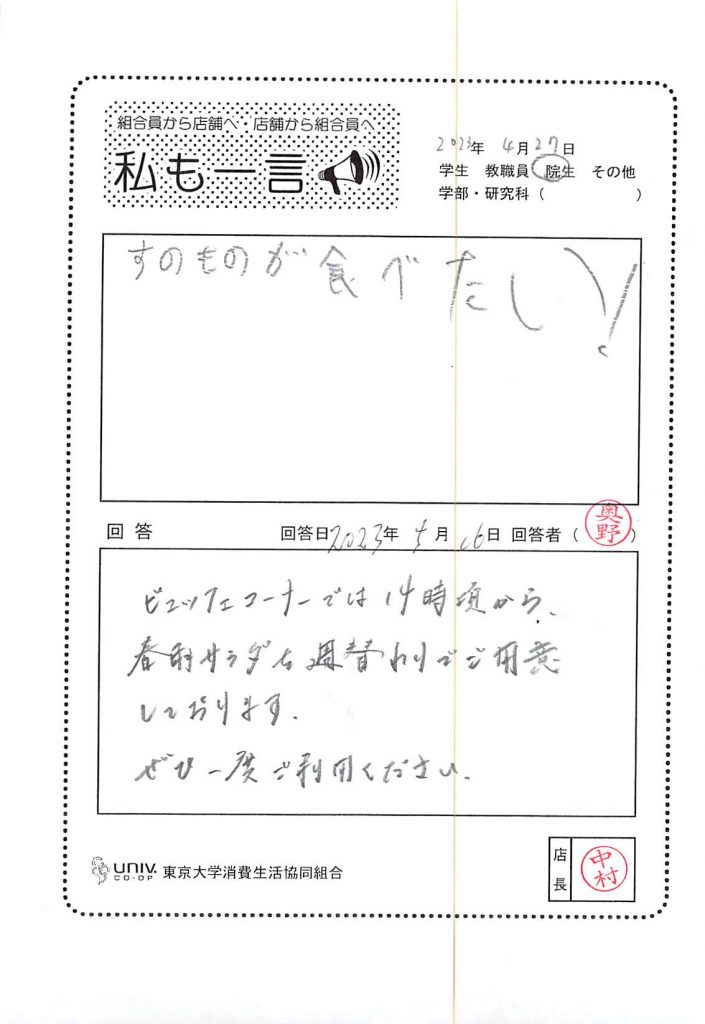 組合員から店舗へ・店舗から組合員へ
私も一言
2023年 4月27日
学生 教職員 院生 その他
学部・研究科（ ）
すのものが食べたし!
回答 回答日2023年 5月16日 回答者（奥野）
ビュッフェコーナーでは14時頃から、
春雨サラダを週替わりでご用意
しております。
ぜひ一度ご利用ください。
UNIV. CO-OP 東京大学消費生活協同組合
店長 中村